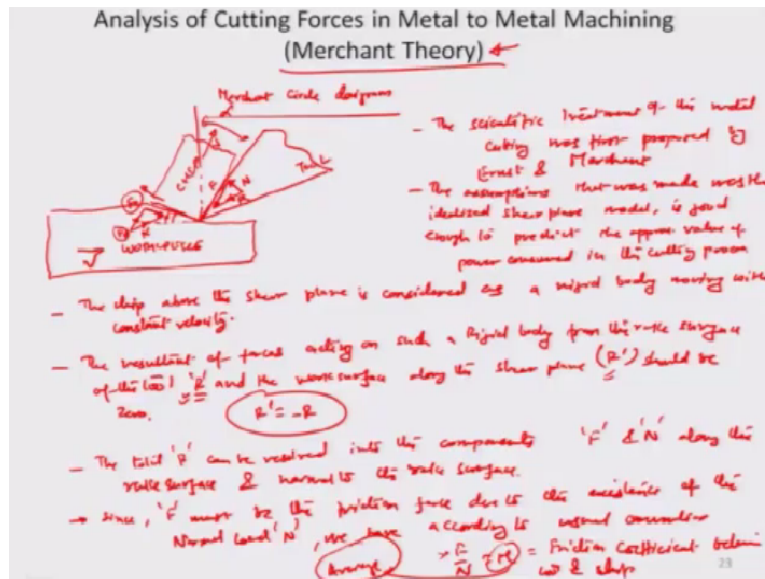 Analysis of Cutting Forces in Metal to Metal Machining
(Merchant Theory)
Merchant Circle diagram
- The scientific treatment of the metal
cutting was first proposed by
Ernst & Merchant
- The assumptions that was made was the
idealised shear plane model, is good
enough to predict the approx value of
power consumed in the cutting process
CHIP
TOOL
F
N
R
WORKPIECE
V
- The chip above the shear plane is considered as a rigid body moving with
constant velocity.
- The resultant of forces acting on such a rigid body from the rake surface
of the tool 'R' and the work surface along the shear plane (R') should be
zero.
R' = -R
- The total 'R' can be resolved into the components 'F' & 'N' along the
rake surface & normal to the rake surface.
→ Since, 'F' must be the friction force due to the existence of the
Normal Load 'N', we have according to usual convention
Average F/N = M = Friction coefficient
& chip
23